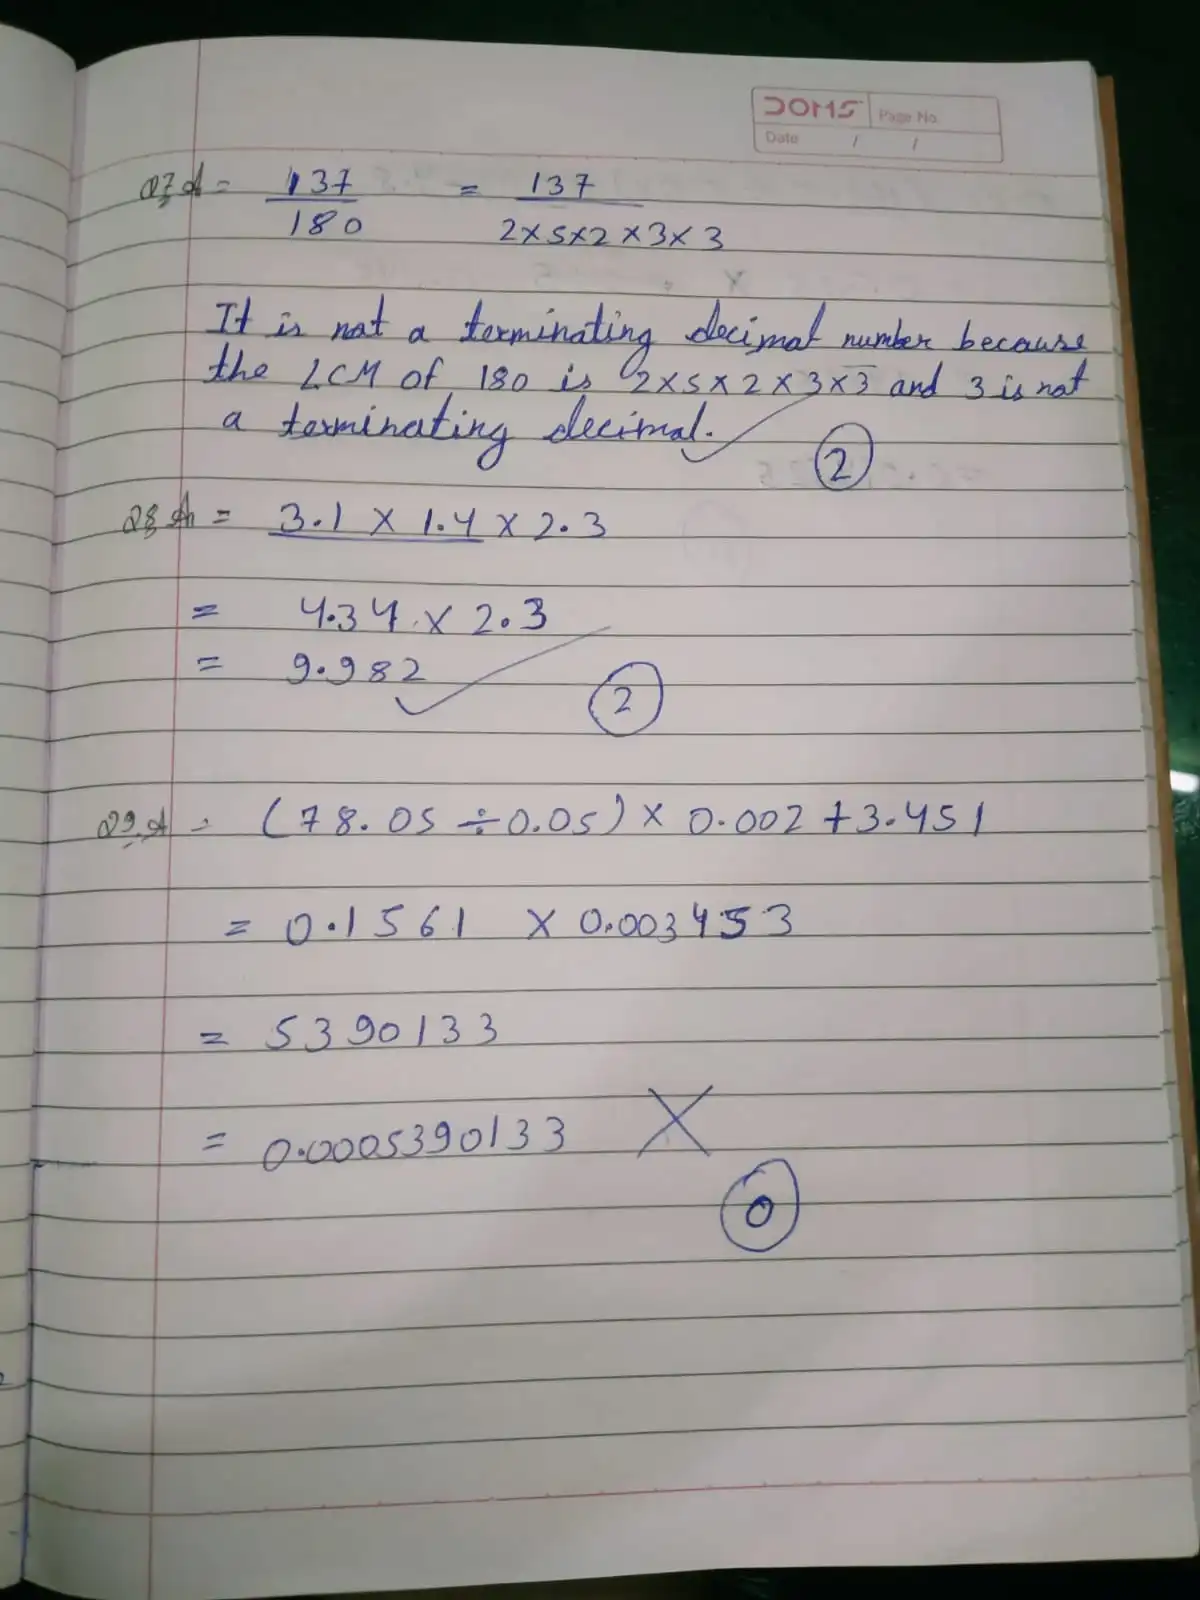 DOMS
Page No.
Date / /
Q7 A = 137/180 = 137/2×5×2×3×3
It is not a terminating decimal number because
the LCM of 180 is 2×5×2×3×3 and 3 is not
a terminating decimal.
2
Q8 A = 3.1 × 1.4 × 2.3
= 4.34 × 2.3
= 9.982
2
Q9. A = (78.05 ÷ 0.05) × 0.002 + 3.451
= 0.1561 × 0.003453
= 5390133
= 0.0005390133
0